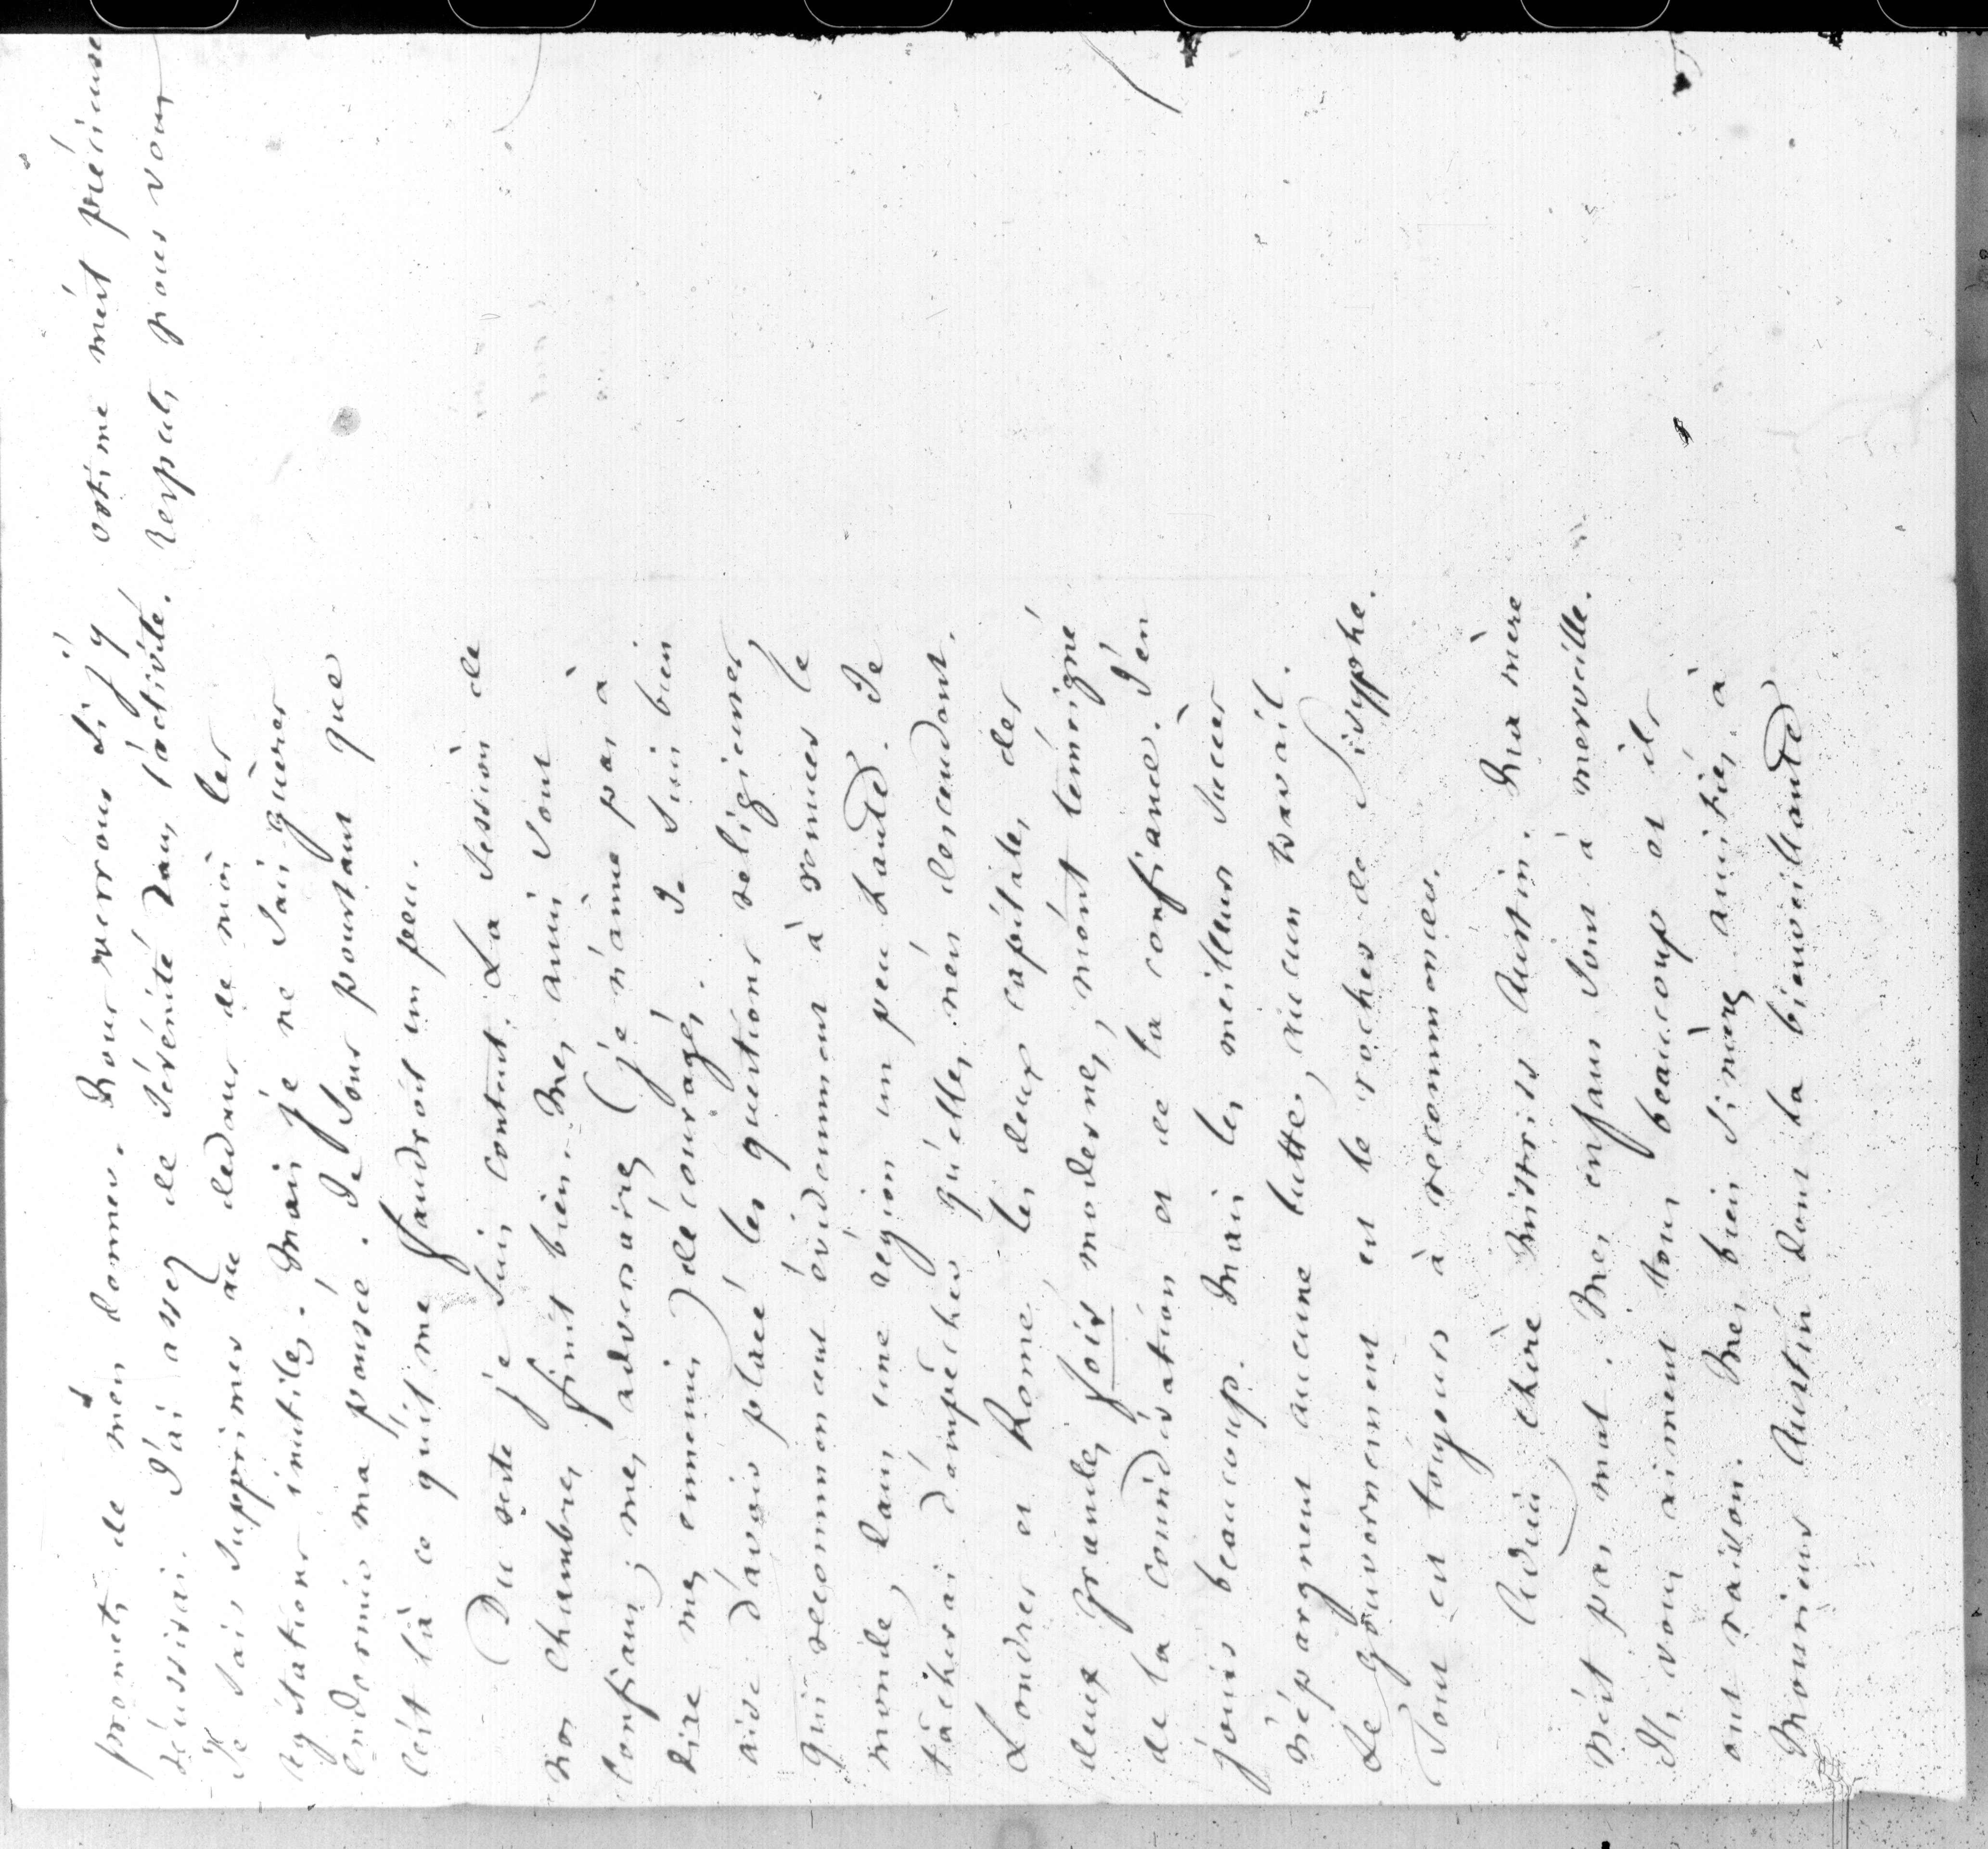 promets de m'en donner. Nous verrons si j'y
réussirai. J'ai assez de sérénité dans l'activité.
Je sais supprimer au dedans de moi les
agitations inutiles. Mais je ne sais guères
endormir ma pensée. Je sens pourtant que
c'est là ce qu'il me faudroit un peu.
Du reste je suis content. La session de
nos chambres finit bien. Mes amis sont
confians; mes adversaires (je n'aime pas à
dire mes ennemis) découragés. Je suis bien
aise d'avoir placé les questions religieuses,
qui recommencent évidemment à remuer le
monde, dans une région un peu haute. Je
tâcherai d'empêcher qu'elles n'en descendent.
Londres et Rome, les deux capitales des
deux grandes fois modernes, m'ont témoigné
de la considération et de la confiance. J'en
jouis beaucoup. Mais les meilleurs succès
n'épargnent aucune lutte, aucun travail.
Le gouvernement est le rocher de Sisyphe.
Tout est toujours à recommencer.
Adieu, chère Mistriss Austin. Ma mère
n'est pas mal. Mes enfans sont à merveille.
Ils vous aiment tous beaucoup et ils
ont raison. Mes bien sincères amitiés à
Monsieur Austin dont la bienveillante
estime m'est précieuse
respects pour vous